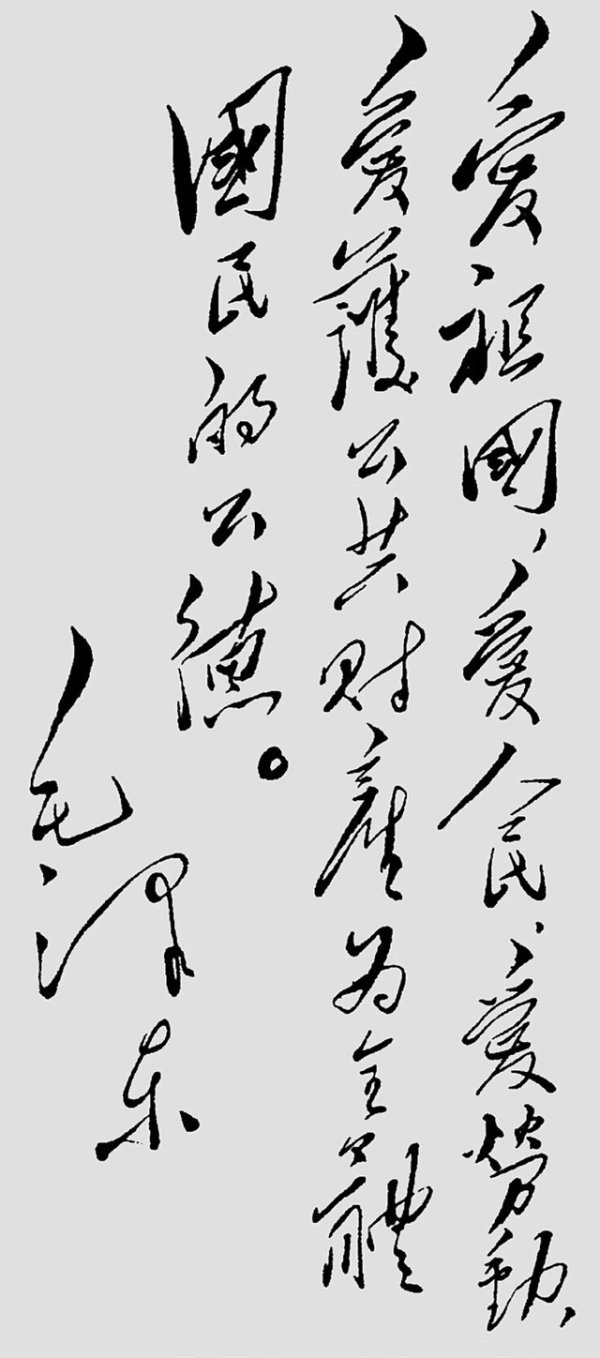 愛祖國、愛人民、愛勞動、
愛護公共財產為全體
國民的公德。
毛澤东